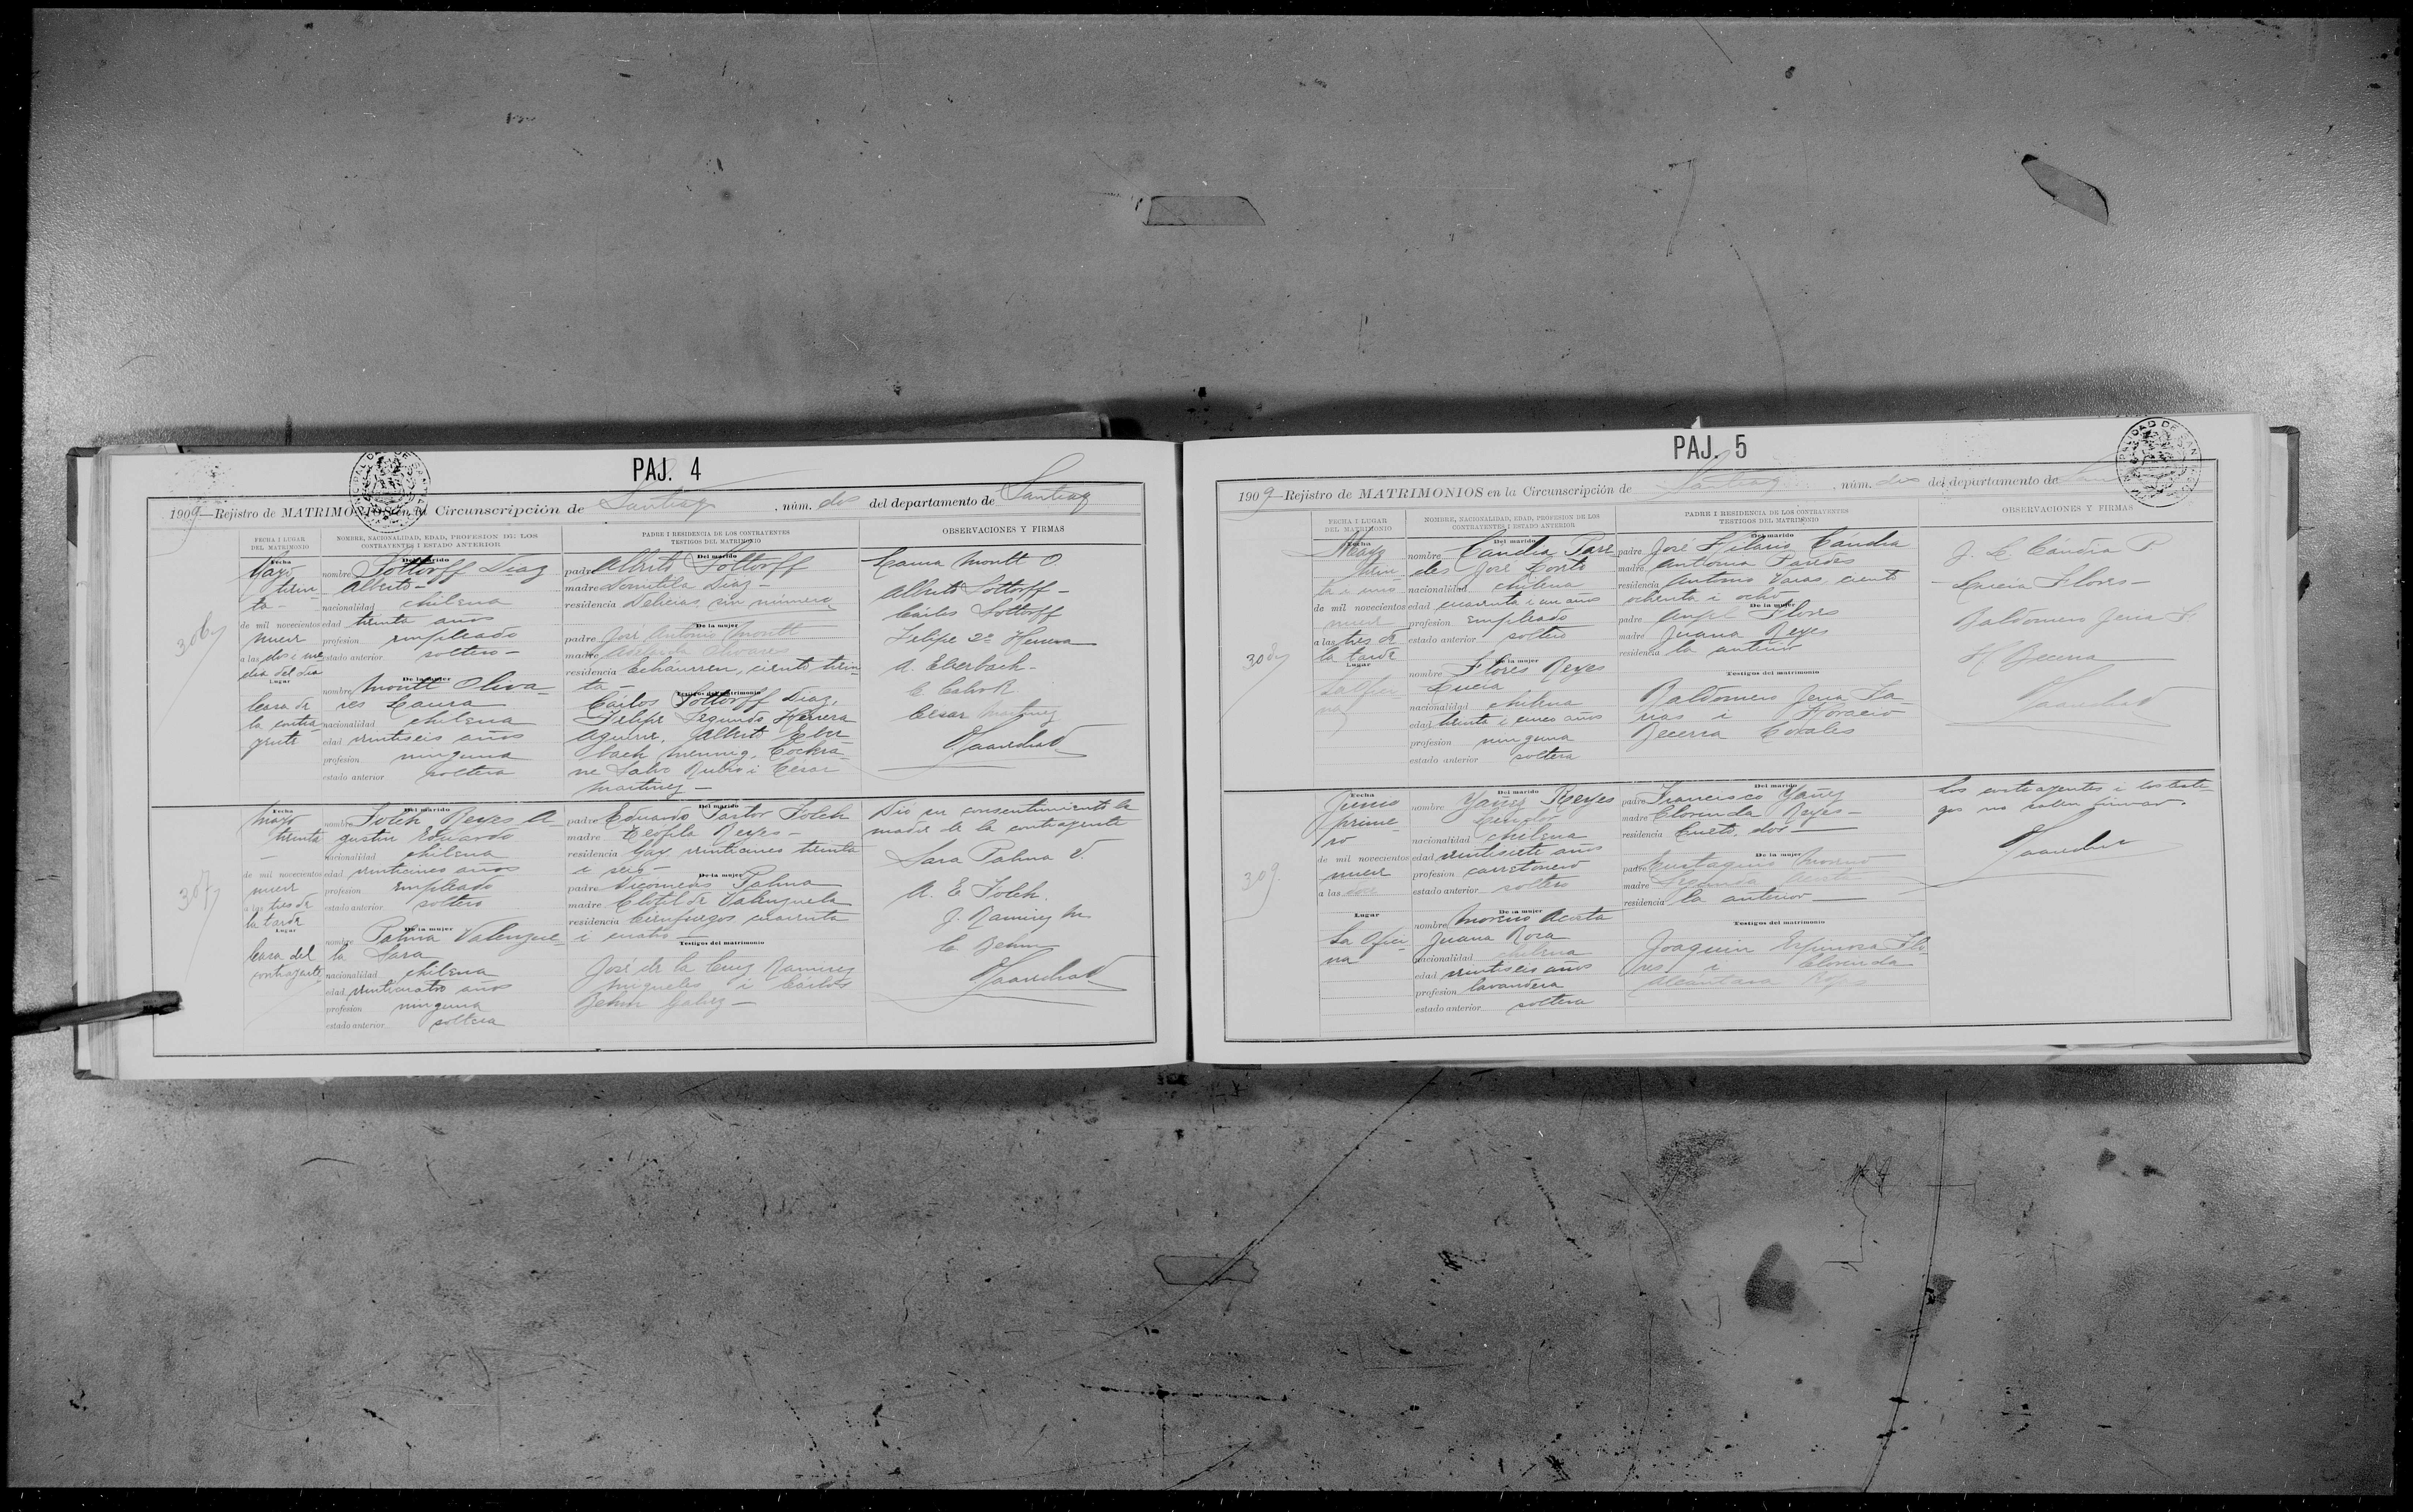 PAJ. 4
1909—Rejistro de MATRIMONIOS en la Circunscripción de Santiago, núm. dos del departamento de Santiago
FECHA I LUGAR DEL MATRIMONIO
NOMBRE, NACIONALIDAD, EDAD, PROFESION DE LOS CONTRAYENTES I ESTADO ANTERIOR
PADRE I RESIDENCIA DE LOS CONTRAYENTES TESTIGOS DEL MATRIMONIO
OBSERVACIONES Y FIRMAS
306
Fecha
Mayo
trein-
ta-
de mil novecientos
nueve
a las dos i me
dia del dia
Lugar
Casa de
la contra
yente
Del marido
nombre Sottorff Diaz
Alberto-
nacionalidad chilena
edad treinta años
profesion empleado
estado anterior soltero-
De la mujer
nombre Montt Oliva-
res Laura
nacionalidad chilena
edad veintiseis años
profesion ninguna
estado anterior soltera
Del marido
padre Alberto Sottorff
madre Domitila Diaz-
residencia Delicias, sin número
De la mujer
padre José Antonio Montt
madre Adelaida Olivares
residencia Echáurren, ciento trein
ta-
Testigos del matrimonio
Cárlos Sottorff Diaz,
Felipe Segundo Herrera
Aguirre, Alberto Eber
bach Menning, Cockra-
ne Calvo Rubio i César
Martinez-
Laura Montt O.
Alberto Sottorff-
Cárlos Sottorff
Felipe 2º Herrera
A. Eberbach-
C. Calvo R
César Martinez
307
Fecha
Mayo
treinta
-
de mil novecientos
nueve
a las tres de
la tarde
Lugar
Casa del
contrayente
Del marido
nombre Folch Reyes A-
gustin Eduardo
nacionalidad chilena
edad veinticinco años
profesion empleado
estado anterior soltero
De la mujer
nombre Palma Valenzue-
la Sara
nacionalidad chilena
edad veinticuatro años
profesion ninguna
estado anterior soltera
Del marido
padre Eduardo Pastor Folch
madre Teofila Reyes-
residencia Gay, veinticinco treinta
i seis-
De la mujer
padre Nicomedes Palma
madre Clotilde Valenzuela
residencia Cienfuegos cuarenta
i cuatro-
Testigos del matrimonio
José de la Cruz Ramirez
Migueles i Cárlos
Behm Galvez-
Dió su consentimiento la
madre de la contrayente
Sara Palma V.
A. E. Folch.
J. Ramirez M.
C. Behm
PAJ. 5
1909—Rejistro de MATRIMONIOS en la Circunscripción de Santiago, núm. dos del departamento de
FECHA I LUGAR DEL MATRIMONIO
NOMBRE, NACIONALIDAD, EDAD, PROFESION DE LOS CONTRAYENTES I ESTADO ANTERIOR
PADRE I RESIDENCIA DE LOS CONTRAYENTES TESTIGOS DEL MATRIMONIO
OBSERVACIONES Y FIRMAS
308
Fecha
Mayo
trein-
ta i uno
de mil novecientos
nueve
a las tres de
la tarde
Lugar
La Ofici
na
Del marido
nombre Candia Pare
des José
nacionalidad chilena
edad cuarenta i un años
profesion empleado
estado anterior soltero
De la mujer
nombre Flores Reyes
Lucia
nacionalidad chilena
edad treinta i cinco años
profesion ninguna
estado anterior soltera
Del marido
padre José Hilario Cándia
madre Antonia Paredes
residencia Antonio Varas, ciento
ochenta i ocho
De la mujer
padre Anjel Flores
madre Juana Reyes
residencia la anterior
Testigos del matrimonio
Baldomero Jena Fa
rias i Horacio
Becerra Corales
J. L. Cándia P
Lucia Flores-
Baldomero Jena F.
H Becerra
309
Fecha
Junio
prime-
ro
de mil novecientos
nueve
a las doce
Lugar
La Ofici-
na
Del marido
nombre Yañez Reyes
nacionalidad chilena
edad veintisiete años
profesion carretonero
estado anterior soltero
De la mujer
nombre Moreno Acosta
Juana Rosa
nacionalidad chilena
edad veintiseis años
profesion lavandera
estado anterior soltera
Del marido
padre Francisco Yañez
madre Clorinda Reyes-
residencia Cueto, dos-
De la mujer
padre Eustaquio Moreno
madre Segunda Acosta
residencia la anterior-
Testigos del matrimonio
Joaquin Espinosa Flo
res i Clorinda
Alcántara
Los contrayentes i los testi-
gos no saben firmar.